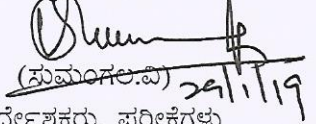 (ಸುಮಂಗಲ.ವಿ) 29/1/19
ನಿರ್ದೇಶಕರು ಪರೀಕ್ಷೆಗಳು